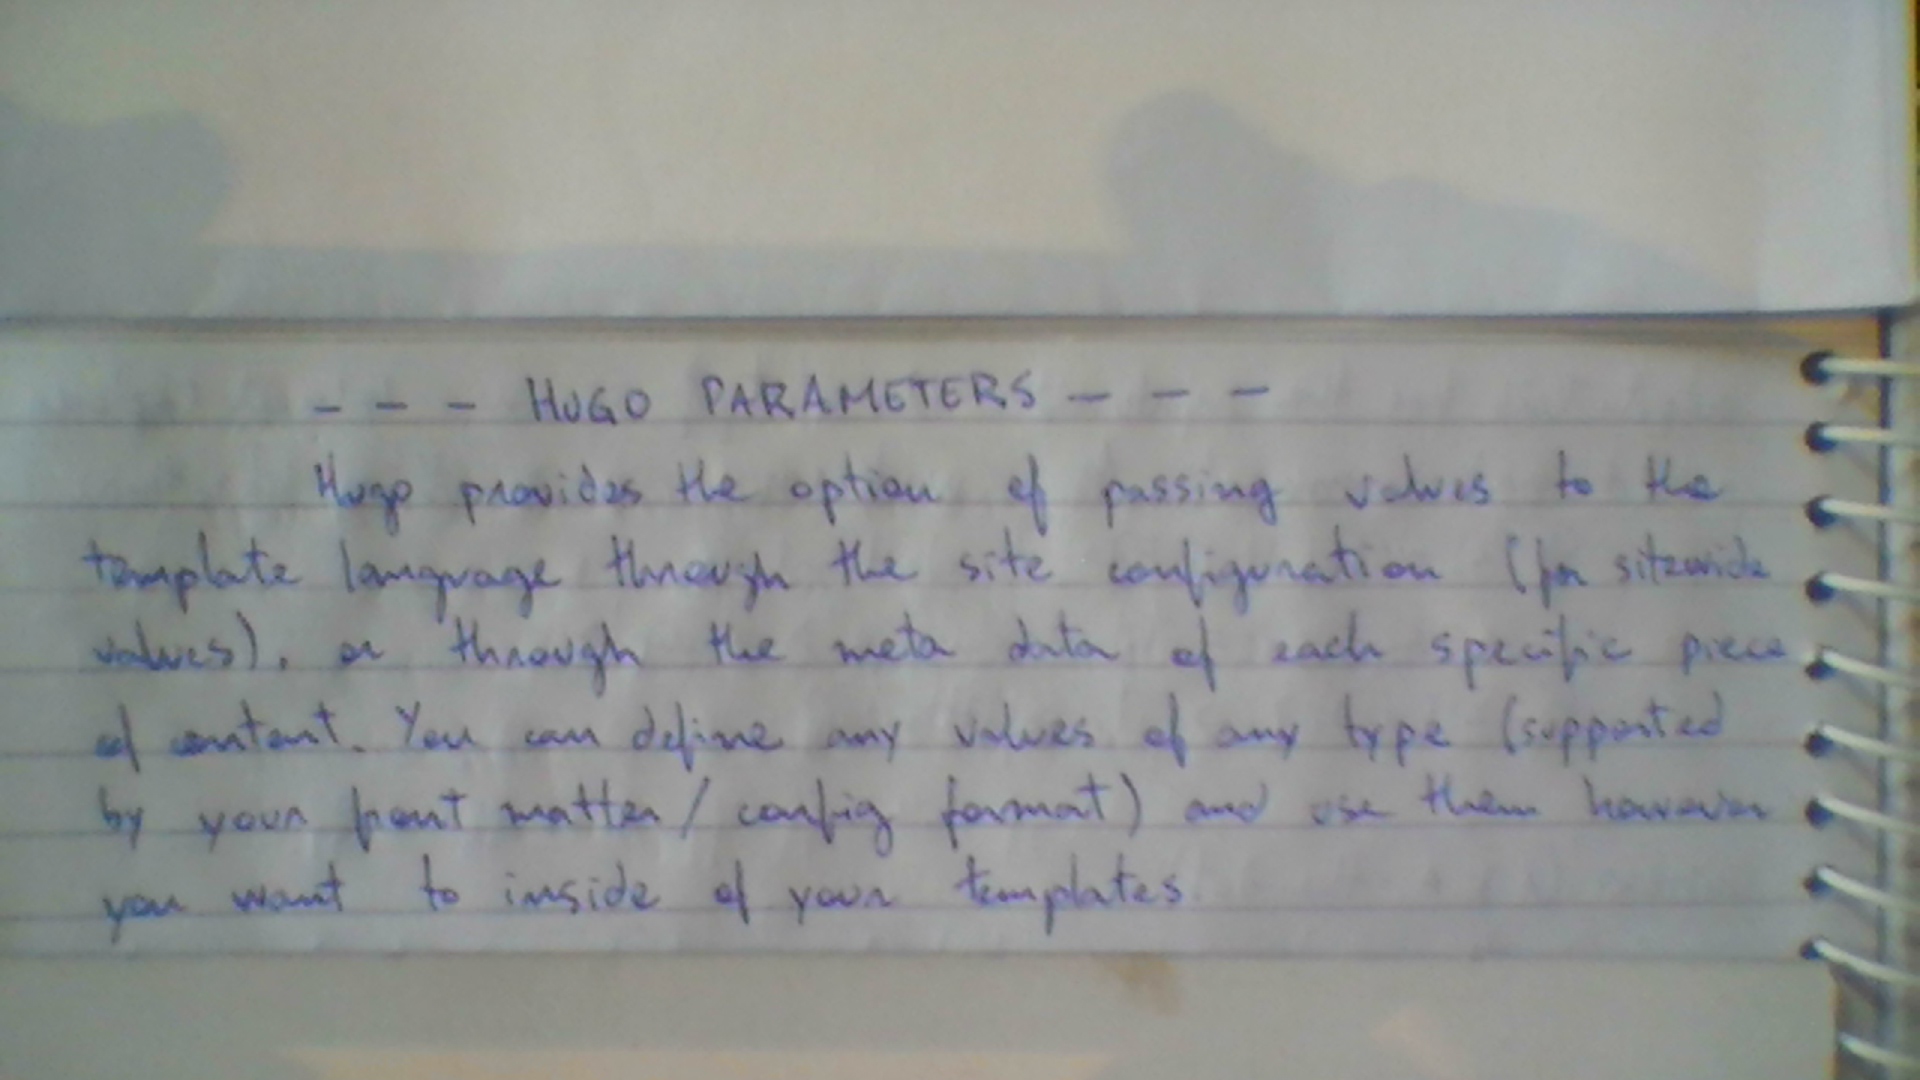 - - - HUGO PARAMETERS - - -
Hugo provides the option of passing values to the
template language through the site configuration (for sitewide
values), or through the meta data of each specific piece
of content. You can define any values of any type (supported
by your front matter/config format) and use them however
you want to inside of your templates.